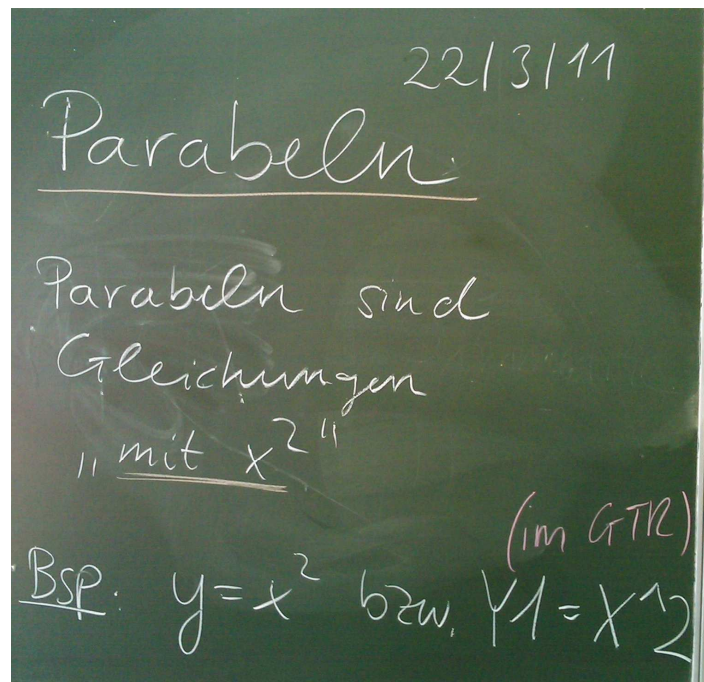 22/3/11
Parabeln
Parabeln sind
Gleichungen
„mit x²"
(im GTR)
Bsp: y=x² bzw. Y1=X^2